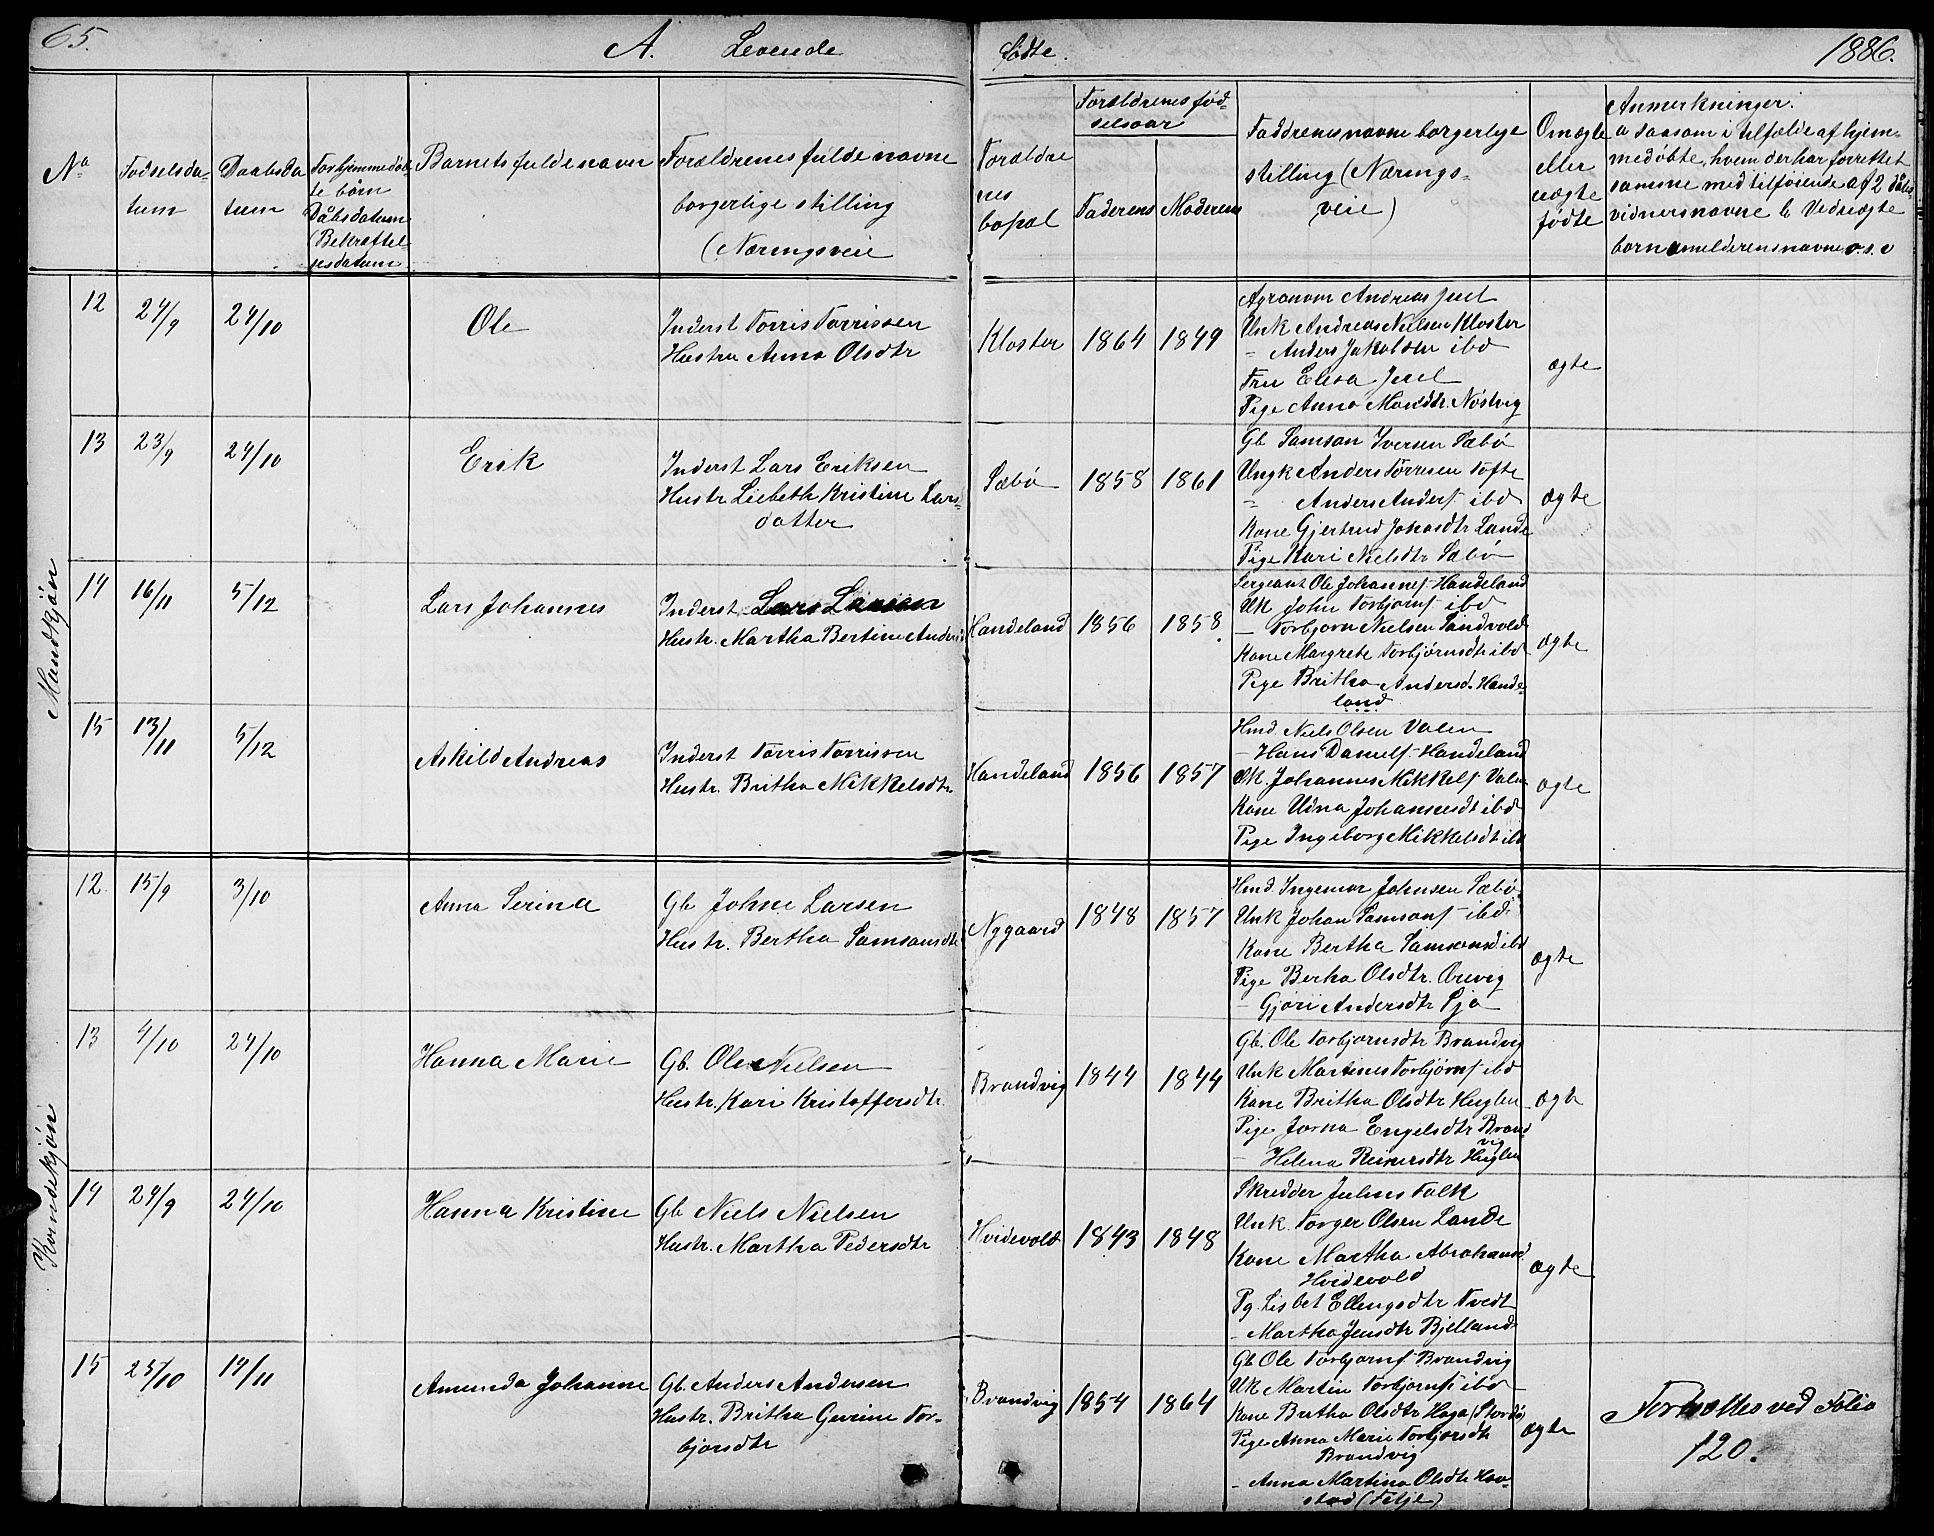 65.
A. Levende
fødte.
1886.
No
Fødselsda-
tum
Daabsda
tum
For hjemmedøb
te børn
Dåbsdatum
(Bekræftel-
sesdatum
Barnets fulde navn
Forældrenes fulde navne
borgerlige stilling
(Næringsveie
Forældre
nes
bopæl
Forældrenes fød-
selsaar
Faderens
Moderens
Faddrenes navne borgerlige
stilling (Nærings-
veie)
Om ægte
eller
uægte
fødte
Anmerkninger.
a saasom i tilfælde af hjem-
medøbte, hvem der har forrettet
samme med tilføiende af 2 dåbs
vidners navne b Ved uægte
børn anmelderens navn o.s.v
Mandkjøn
12
24/9
24/10
Ole
Inderst Torris Torrissen
Hustru Anna Olsdtr
Kloster
1864
1849
Agronom Andreas Juel
Unk Andreas Nielsen Kloster
- Anders Jakobsen ibd
Fru Elisa Juel
Pige Anna Monsdtr. Nøstvig
ægte
13
23/9
24/10
Erik
Inderst Lars Eriksen
Hustr Lisbeth Kristine Lars-
datter
Sæbø
1858
1861
Gb Samson Iversen Sæbø
Ungk Anders Torresen Tofte
- Anders Andersf ibd
Kone Gjertrud Johasdtr Lande
Pige Kari Nielsdtr Sæbø
ægte
14
16/11
5/12
Lars Johannes
Inderst Lars Larsen
Hustr. Martha Bertine Anders
Handeland
1856
1858
Sergeant Ole Johannesf Handeland
Uk John Torbjørnf ibd
- Torbjørn Nielsen Sandvold
Kone Margrete Torbjørnsdtr ibd
Pige Britha Andersd. Hande-
land
ægte
15
13/11
5/12
Askild Andreas
Inderst Torris Torrissen
Hustr. Britha Mikkelsdtr
Handeland
1856
1857
Hmd. Niels Olsen Valen
- Hans Danielf Handeland
Uk. Johannes Mikkelf Valen
Kone Udna Johannesdt ibd
Pige Ingeborg Mikkelsdt ibd
ægte
Kvindekjøn
12
15/9
3/10
Anna Serina
Gb Johne Larsen
Hustr. Bertha Samsonsdtr
Nygaard
1848
1857
Hmd. Ingemar Johnsen Sæbø
Unk Johan Samsonf ibd
Kone Bertha Samsonsd ibd
Pige Berha Olsdtr.
- Gjøri Andersdtr Sjo
ægte
13
4/10
24/10
Hanna Marie
Gb. Ole Nielsen
Hustr. Kari Kristoffersdtr.
Brandvig
1844
1844
Gb. Ole Torbjørnsdtr Brandvig
Unk Martines Torbjørnf ibd
Kone Britha Olsdtr Huglen
Pige Jorna Engelsdtr Brand
vig
- Helena Reinersdtr Huglen
ægte
14
24/9
24/10
Hanna Kristine
Gb Niels Nielsen
Hustr. Martha Pedersdtr
Hvidevold
1843
1848
Skredder Julius Falk
Unk. Torger Olsen Lande
Kone Martha Abrahamsd
Hvidevold
Pg. Lisbet Ellingsdtr Tvedt
- Martha Jensdtr Bjelland
ægte
15
25/10
14/11
Amunda Johanne
Gb. Anders Andersen
Hustr. Britha Gurine Tor-
bjørsdtr
Brandvig
1854
1864
Gb Ole Torbjørnf Brandvig
Uk Martin Torbjornf ibd
Kone Britha Olsdtr Haga (Stordø)
Pige Anna Marie Torbjørsdtr
Brandvig
- Anna Martina Olsdtr Hav-
stad (Fitje)
ægte
Fortsættes ved Folio
120.